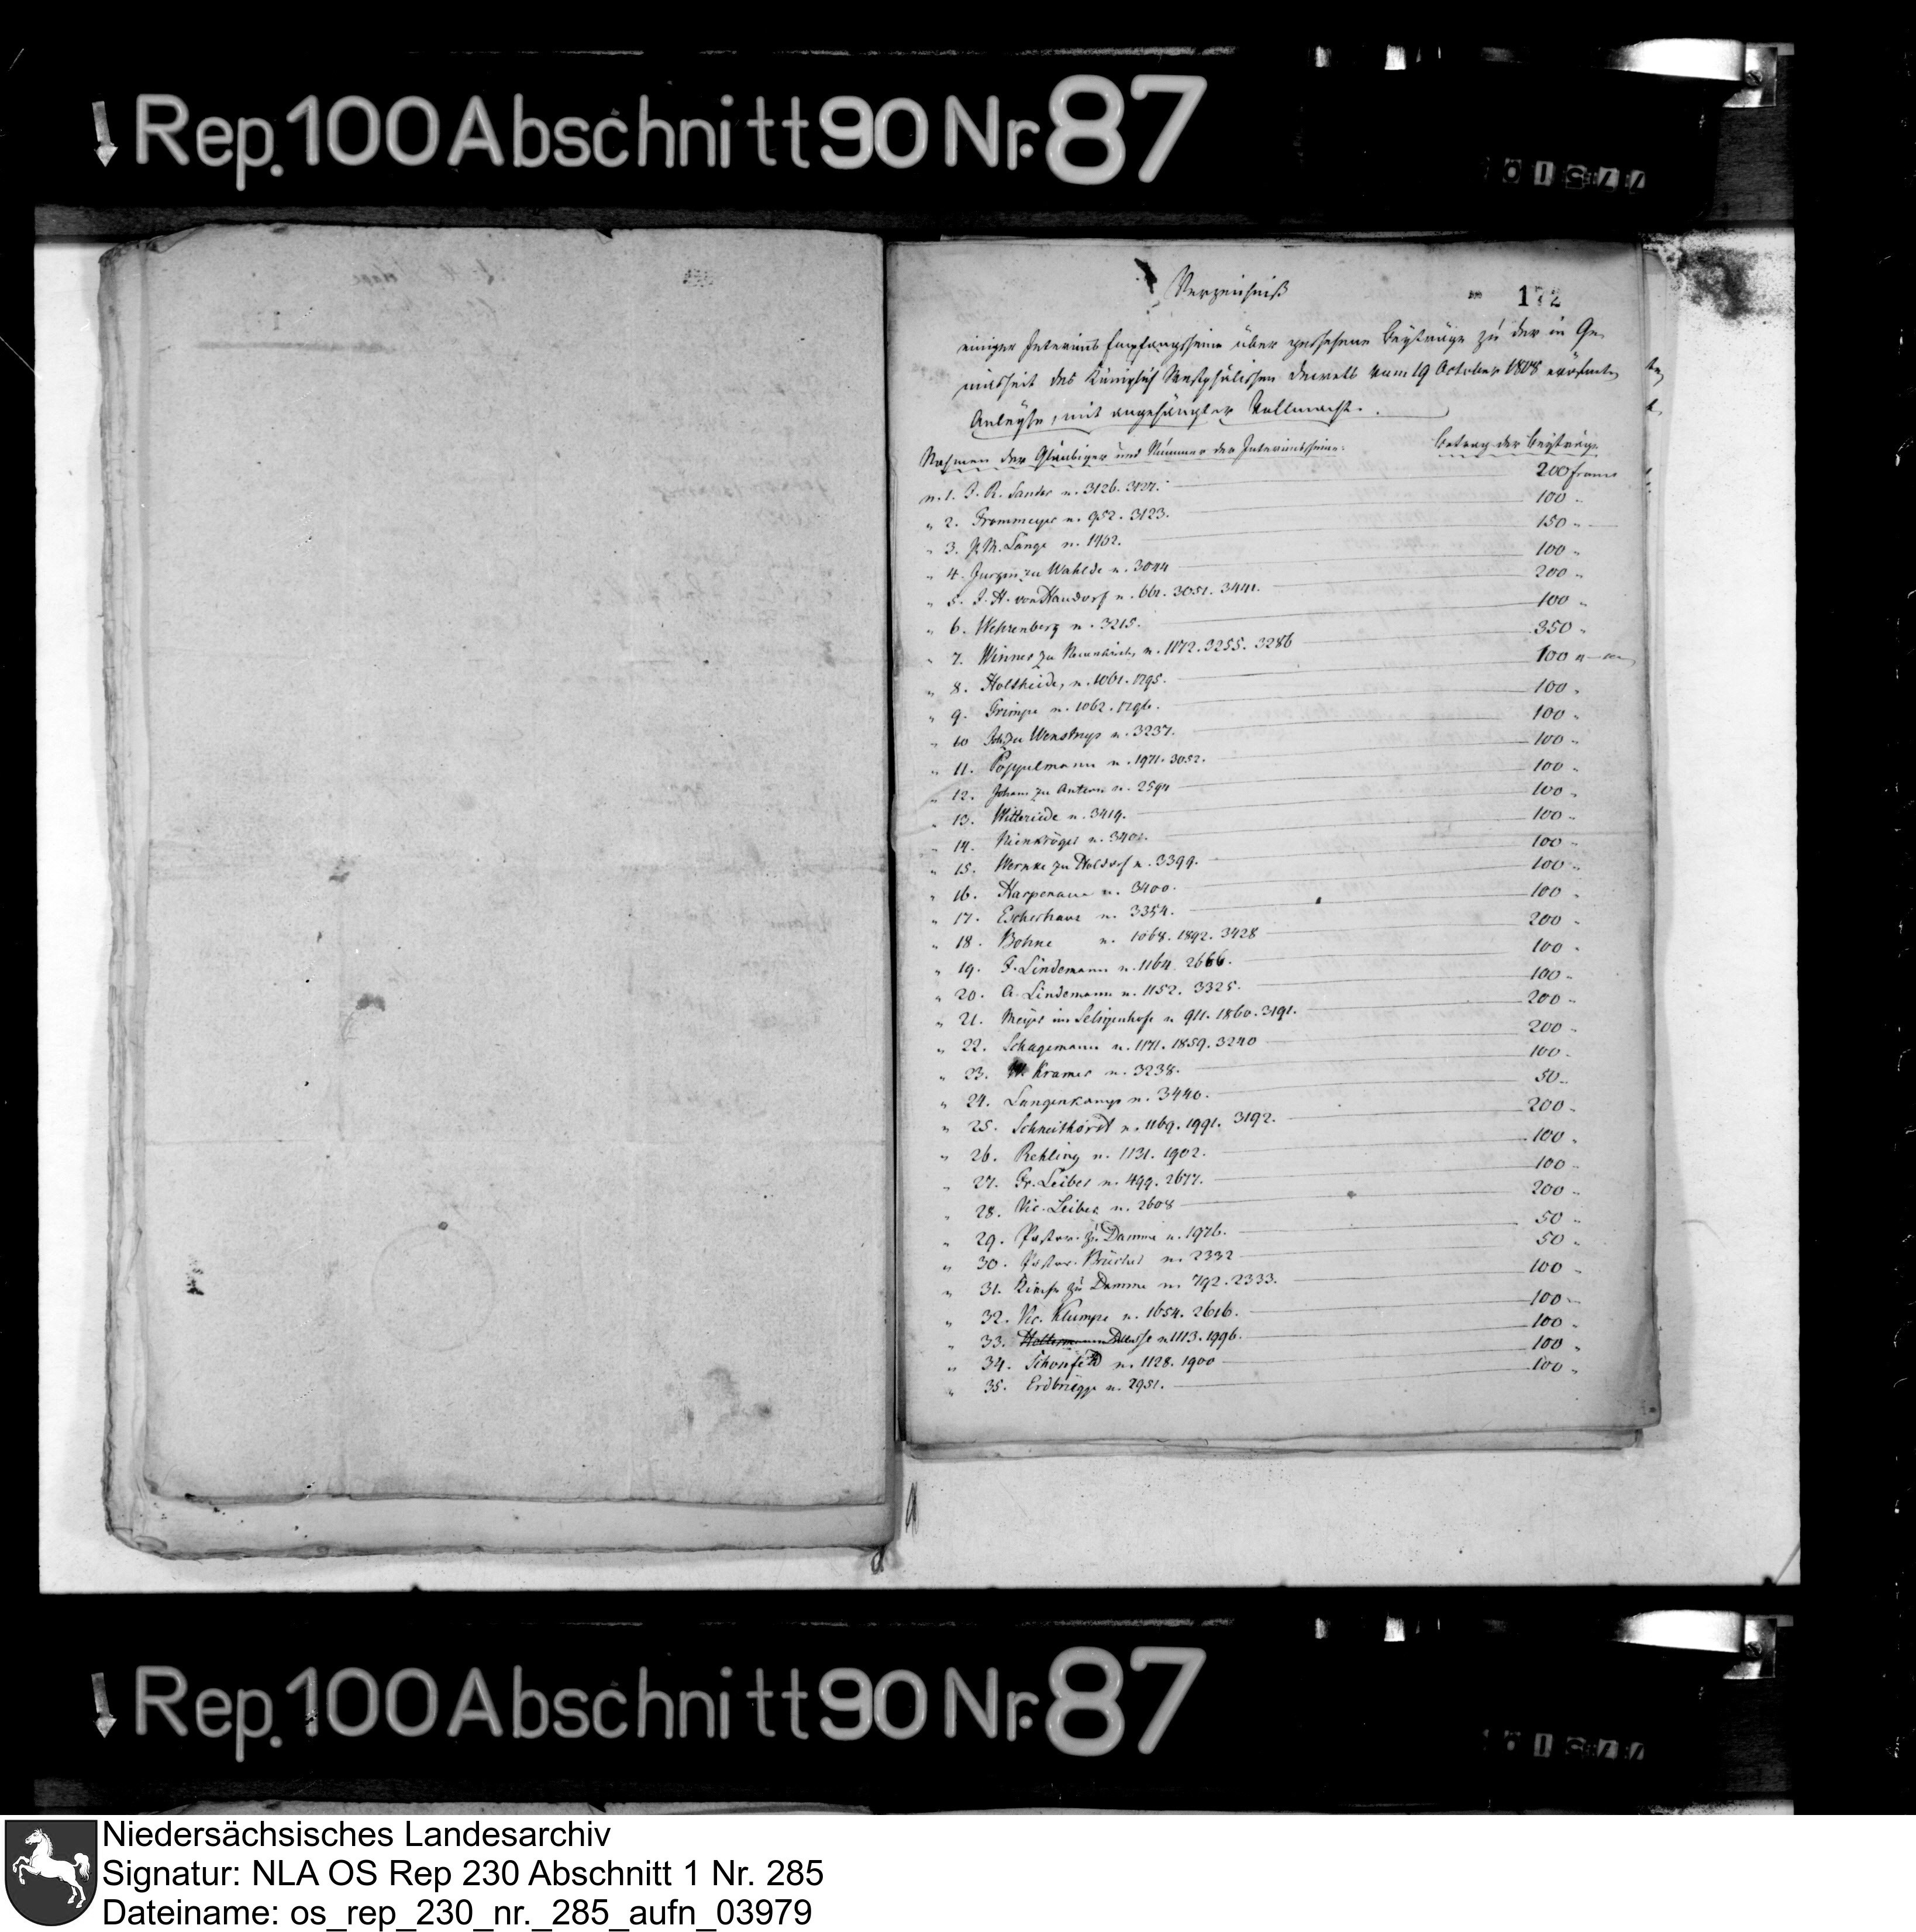 Rep. 100 Abschnitt 90 Nr. 87
Verzeichniß
172
einiger Interims Empfangsscheine über geschehene Beyträge zu der in Ge-
mäsheit des Königlich Westphälischen Decrets vom 19 October 1808 eröfneten
Anleyhe, mit angehängter Vollmacht.
Nahmen der Gläubiger und Nummer der Interimsscheine. Betrag der Beyträge
n. 1. J. R. Sander n. 3126. 3127. 200 francs
" 2. Frommeyer n. 952. 3123. 100 "
" 3. Lange n. 1962. 150 "
" 4. Jurgen zu Wahlde n. 3044 100 "
" 5. J. H. von Handorf n. 661. 3051. 3441. 200 "
" 6. Wehrenberg n. 3215. 100 "
" 7. Winner zu Neuenkirchen n. 1172. 3255. 3286 350 "
" 8. Holtheide, n. 1061. 1795. 100 "
" 9. Trimpe n. 1062. 1796. 100 "
" 10 Joh zu Wenstrup n. 3237. 100 "
" 11. Poppelmann n. 1971. 3052. 100 "
" 12. Johann zu n. 2594 100 "
" 13. Witteriede n. 3419. 100 "
" 14. Nienkröger n. 3402. 100 "
" 15. Wernke zu Holdorf n. 3399. 100 "
" 16. Harpenau n. 3400. 100 "
" 17. Escherhaus n. 3354. 100 "
" 18. Bohne n. 1068. 1892. 3428 200 "
" 19. F. Lindemann n. 1164. 2666. 100 "
" 20. A. Lindemann n. 1152. 3325. 100 "
" 21. Meyer im n. 911. 1860. 3191. 200 "
" 22. Schagemann n. 1171. 1859. 3240 200 "
" 23. W. Kramer n. 3238. 100 "
" 24. Langenkamp n. 3440. 50 "
" 25. Schneithorst n. 1169. 1991. 3192. 200 "
" 26. Rehling n. 1131. 1902. 100 "
" 27. Fr. Leiber n. 499. 2677. 100 "
" 28. Vic. Leiber n. 2608 200 "
" 29. Pastor zu Damme n. 1976. 50 "
" 30. Pastor Brücher n. 2332 50 "
" 31. Kirche zu Damme n. 792. 2333. 100 "
" 32. Vic. Klumpe n. 1654. 2616. 100 "
" 33. n. 1113. 1996. 100 "
" 34. Schonfeld n. 1128. 1900 100 "
" 35. Erdbrügge n. 2951. 100 "
Rep. 100 Abschnitt 90 Nr. 87
Niedersächsisches Landesarchiv
Signatur: NLA OS Rep 230 Abschnitt 1 Nr. 285
Dateiname: os_rep_230_nr._285_aufn_03979